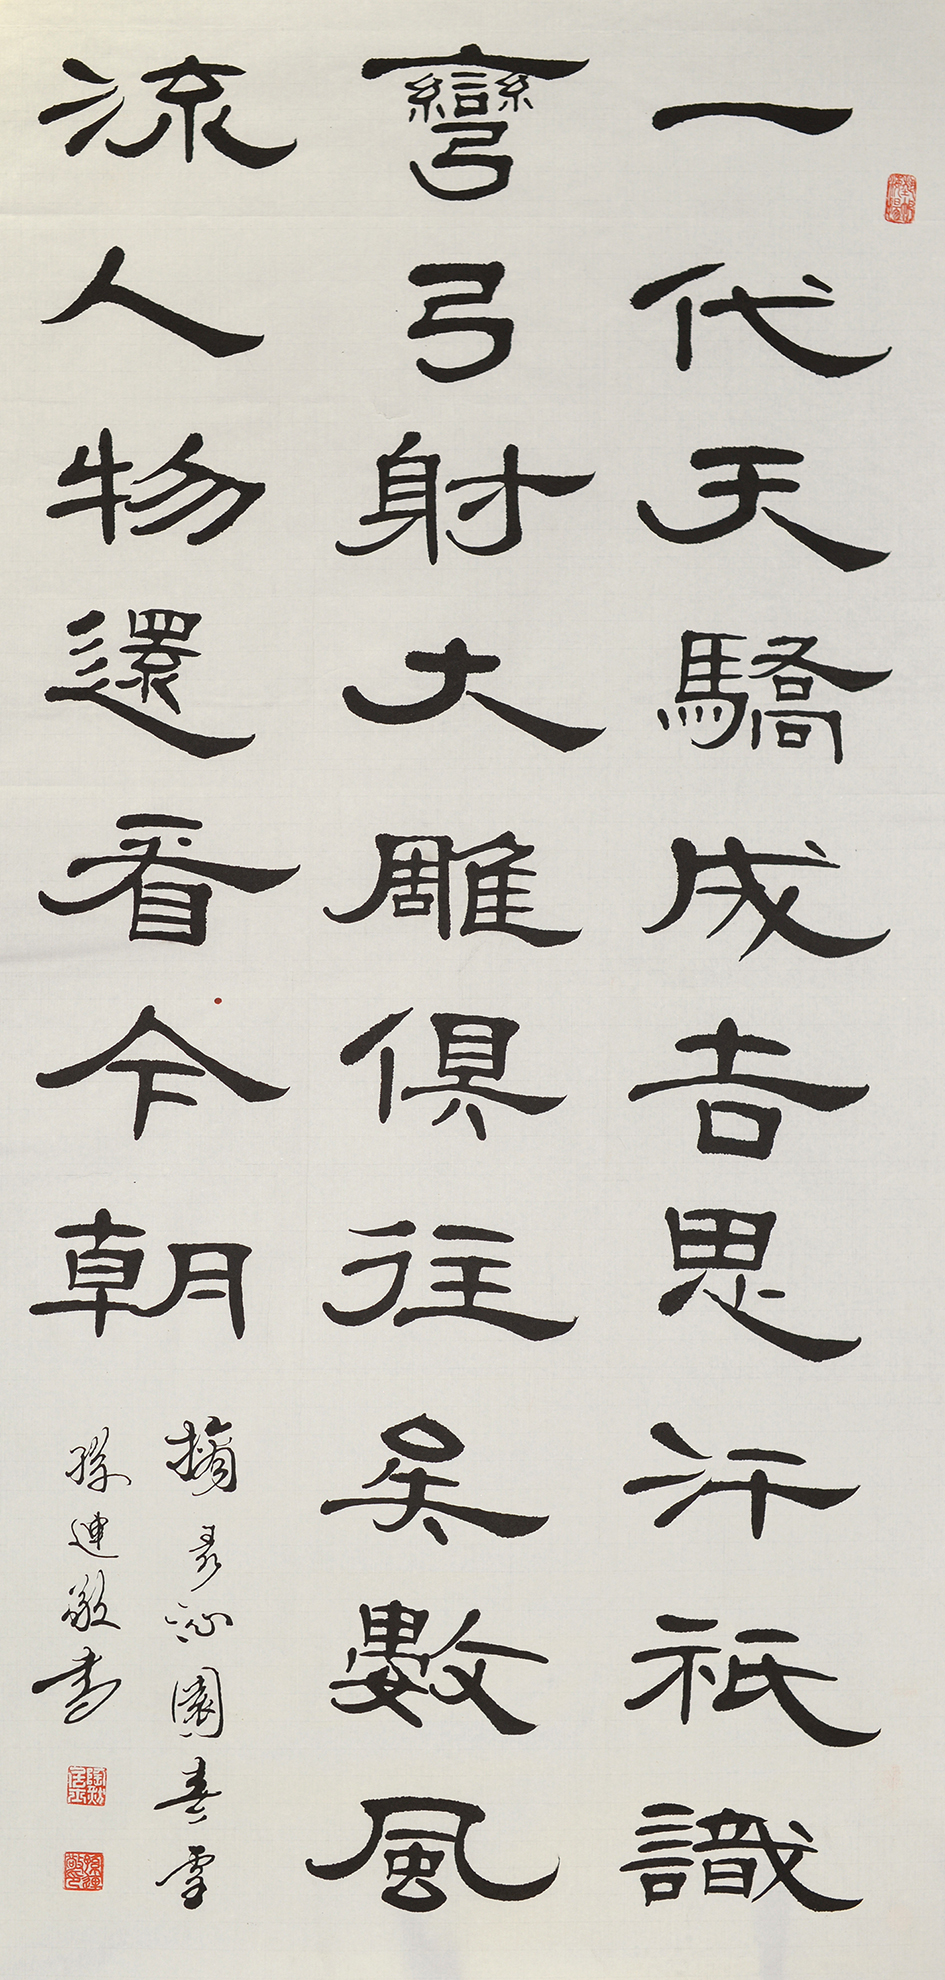 一代天驕成吉思汗祇識
彎弓射大雕俱往矣數風
流人物還看今朝
摘录沁園春雪
孫連敬书